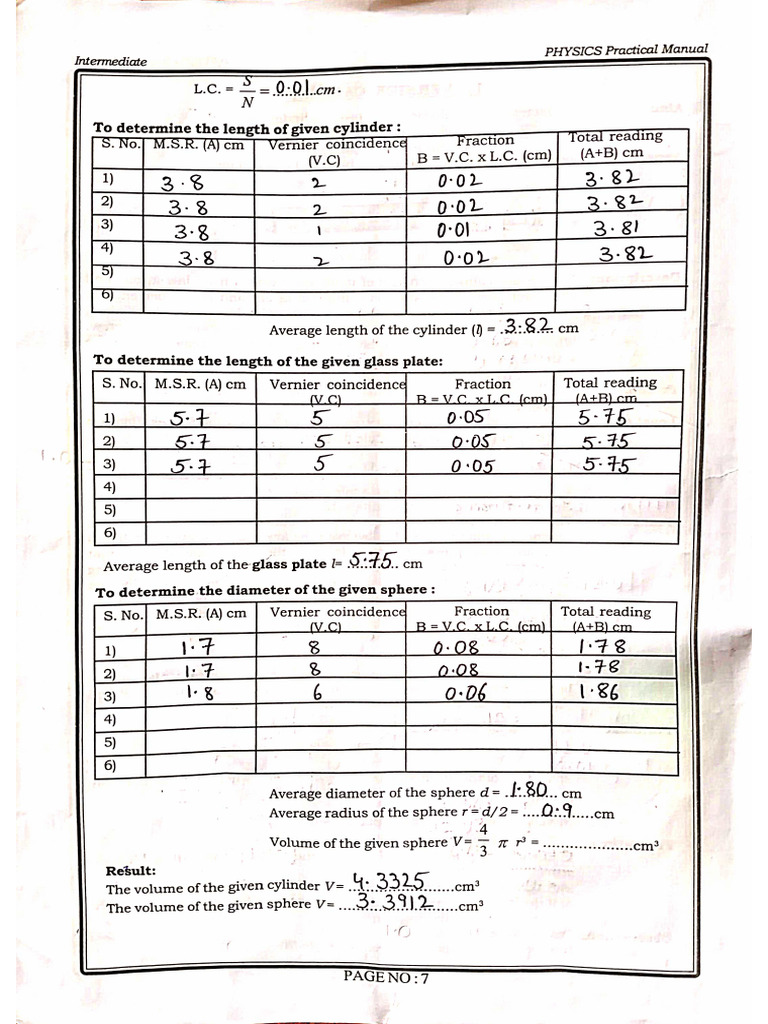 Intermediate PHYSICS Practical Manual
L.C. = S/N = 0.01 cm.
To determine the length of given cylinder :
S. No. M.S.R. (A) cm Vernier coincidence (V.C) Fraction B = V.C. x L.C. (cm) Total reading (A+B) cm
1) 3.8 2 0.02 3.82
2) 3.8 2 0.02 3.82
3) 3.8 1 0.01 3.81
4) 3.8 2 0.02 3.82
5)
6)
Average length of the cylinder (l) = 3.82 cm
To determine the length of the given glass plate:
S. No. M.S.R. (A) cm Vernier coincidence (V.C) Fraction B = V.C. x L.C. (cm) Total reading (A+B) cm
1) 5.7 5 0.05 5.75
2) 5.7 5 0.05 5.75
3) 5.7 5 0.05 5.75
4)
5)
6)
Average length of the glass plate l= 5.75 cm
To determine the diameter of the given sphere :
S. No. M.S.R. (A) cm Vernier coincidence (V.C) Fraction B = V.C. x L.C. (cm) Total reading (A+B) cm
1) 1.7 8 0.08 1.78
2) 1.7 8 0.08 1.78
3) 1.8 6 0.06 1.86
4)
5)
6)
Average diameter of the sphere d = 1.80 cm
Average radius of the sphere r = d/2 = 0.9 cm
Volume of the given sphere V= 4/3 π r³ = ....................cm³
Result:
The volume of the given cylinder V= 4.3325 cm³
The volume of the given sphere V= 3.3912 cm³
PAGE NO : 7